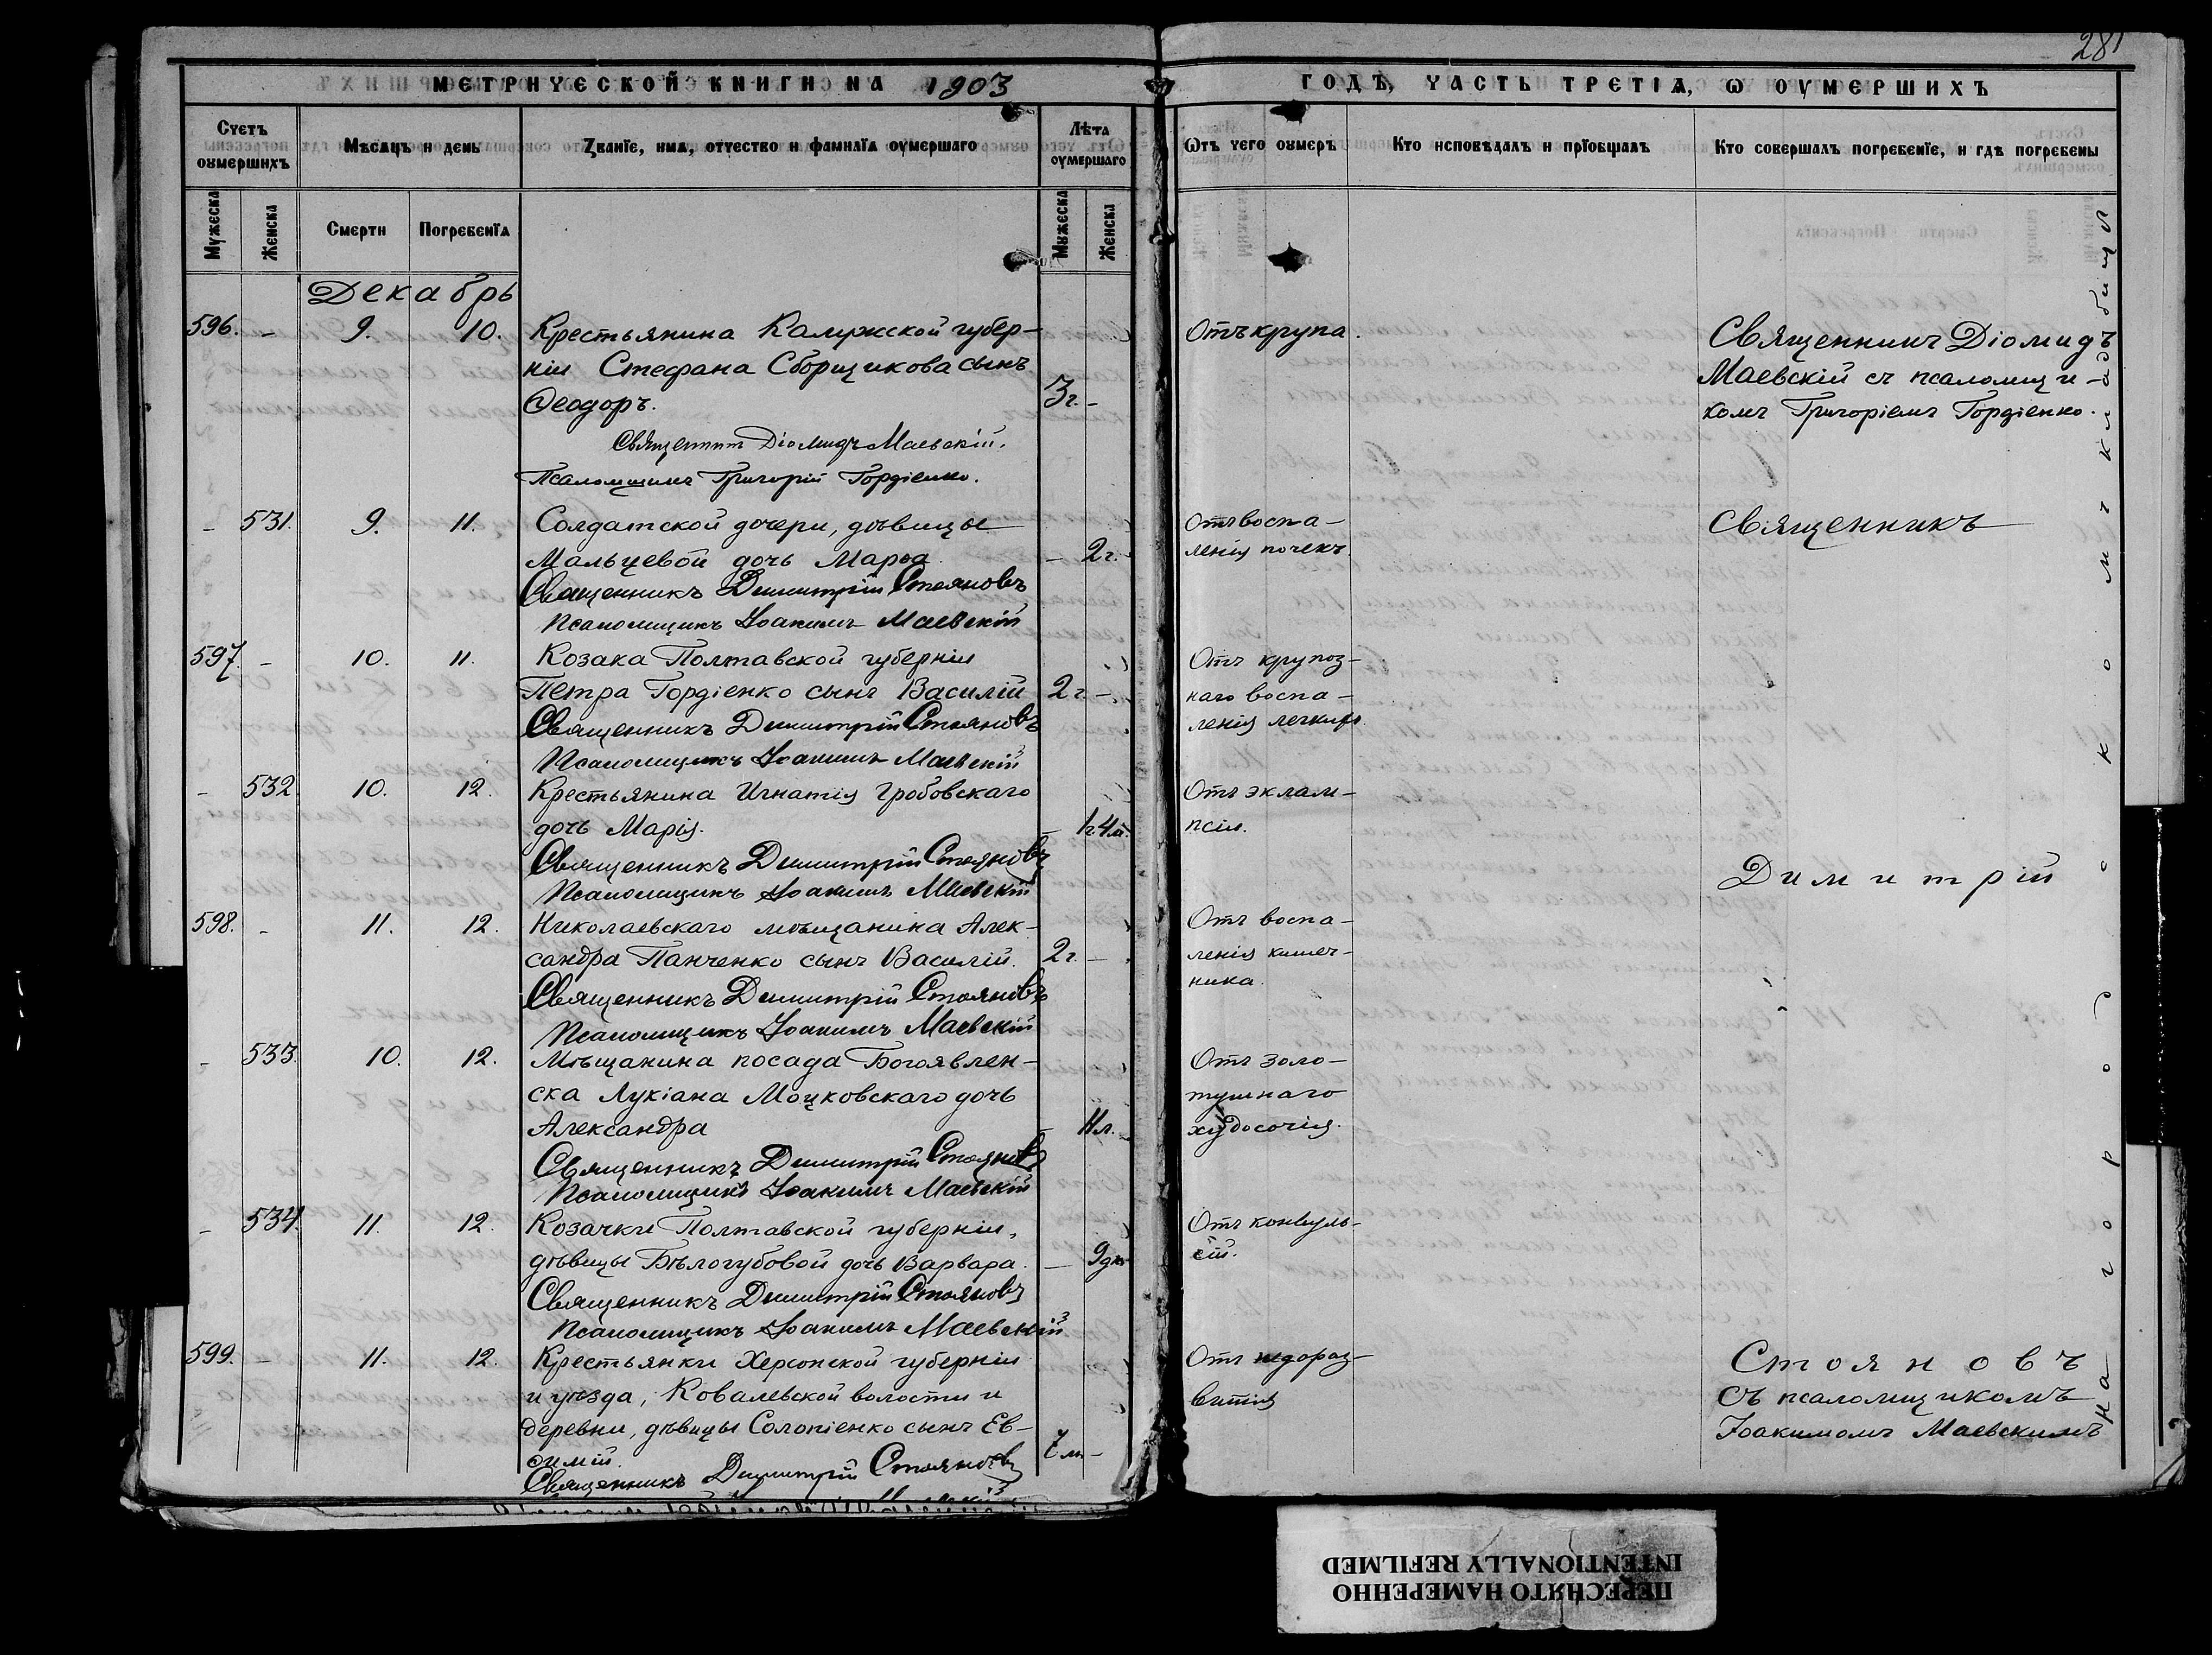 281
МЕТРИЧЕСКОЙ КНИГИ НА 1903
ГОДЪ, ЧАСТЬ ТРЕТІѦ, Ѡ ОУМЕРШИХЪ
Счетъ оумершихъ
Мѣсѧцъ и день
Званїе, имѧ, отчество и фамилїа оумершаго
Лѣта оумершаго
Ѿтъ чего оумеръ
Кто исповѣдалъ и прїобщалъ
Кто совершалъ погребенїе, и гдѣ погребены
Мужеска
Женска
Смерти
Погребенїѧ
Мужеска
Женска
Декабрь
596. - 9. 10. Крестьянина Калужской губер-
ніи Стефана Сборщикова сынъ
Ѳеодоръ. 3 г. -
Священникъ Діомидъ Маевскій.
Псаломщикъ Григорій Гордіенко.
Отъ крупа.
Священникъ Діомидъ
Маевскій съ псаломщи-
комъ Григоріемъ Гордіенко.
- 531. 9. 11. Солдатской дочери, дѣвицы
Мальцевой дочь Марѳа - 2 г.
Священникъ Димитрій Стояновъ
Псаломщикъ Іоакимъ Маевскій
Отъ воспа-
ленія почекъ.
Священникъ
597. - 10. 11. Козака Полтавской губерніи
Петра Гордіенко сынъ Василій 2 г. -
Священникъ Димитрій Стояновъ
Псаломщикъ Іоакимъ Маевскій
Отъ крупоз-
наго воспа-
ленія легкихъ.
- 532. 10. 12. Крестьянина Игнатія Гробовскаго
дочь Марія. - 1 г. 4 м.
Священникъ Димитрій Стояновъ
Псаломщикъ Іоакимъ Маевскій
Отъ эклам-
псіи.
Димитрій
598. - 11. 12. Николаевскаго мѣщанина Алек-
сандра Панченко сынъ Василій. 2 г. -
Священникъ Димитрій Стояновъ
Псаломщикъ Іоакимъ Маевскій
Отъ воспа-
ленія кишеч-
ника.
- 533. 10. 12. Мѣщанина посада Богоявлен-
ска Лукіана Моцковскаго дочь
Александра - 11 л.
Священникъ Димитрій Стояновъ
Псаломщикъ Іоакимъ Маевскій
Отъ золо-
тушнаго
худосочія.
- 534. 11. 12. Козачки Полтавской губерніи,
дѣвицы Бѣлогубовой дочь Варвара. - 9 дн.
Священникъ Димитрій Стояновъ
Псаломщикъ Іоакимъ Маевскій
Отъ конвуль-
сій.
599. - 11. 12. Крестьянки Херсонской губерніи
и уѣзда, Ковалевской волости и
деревни, дѣвицы Солопіенко сынъ Ев-
ѳимій. 7 м. -
Священникъ Димитрій Стояновъ
Отъ недораз-
витія
Стояновъ
съ псаломщикомъ
Іоакимомъ Маевскимъ
На городскомъ кладбищѣ
ПЕРЕСНЯТО НАМЕРЕННО
INTENTIONALLY REFILMED